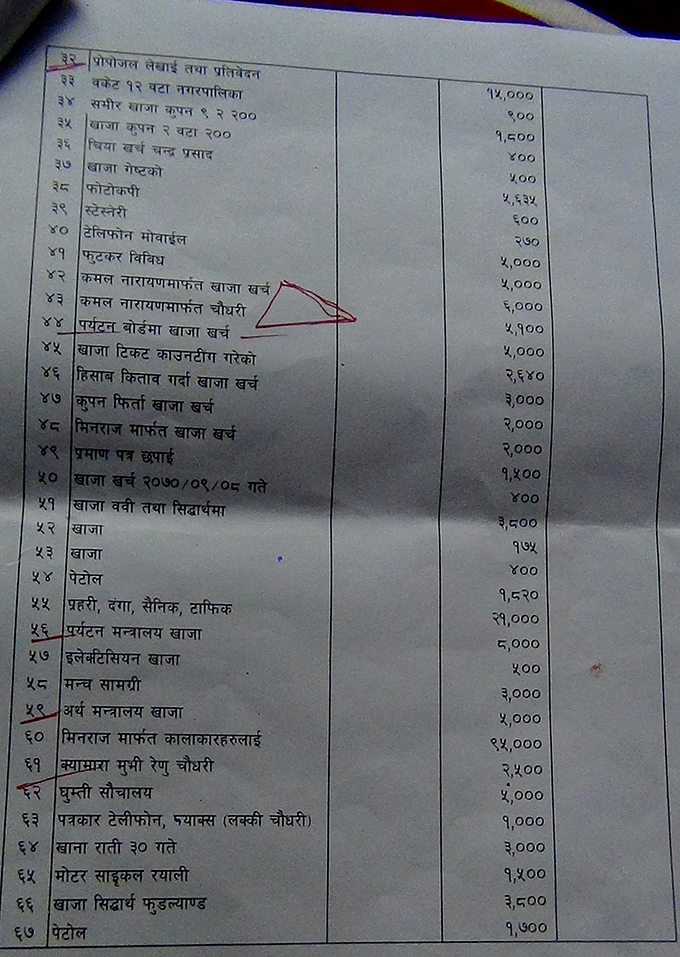 ३२ प्रोपोजल लेखाई तथा प्रतिवेदन १५,०००
३३ वकेट १२ वटा नगरपालिका ९००
३४ समीर खाजा कुपन ९ २ २०० १,८००
३५ खाजा कुपन २ वटा २०० ४००
३६ चिया खर्च चन्द्र प्रसाद ५००
३७ खाजा गेष्टको ५,६३५
३८ फोटोकपी ६००
३९ स्टेस्नेरी २७०
४० टेलिफोन मोवाईल ५,०००
४१ फुटकर विविध ५,०००
४२ कमल नारायणमार्फत खाजा खर्च ६,०००
४३ कमल नारायणमार्फत चौधरी ५,१००
४४ पर्यटन बोर्डमा खाजा खर्च ५,०००
४५ खाजा टिकट काउनटींग गरेको २,६४०
४६ हिसाब किताव गर्दा खाजा खर्च ३,०००
४७ कुपन फिर्ता खाजा खर्च २,०००
४८ मिनराज मार्फत खाजा खर्च २,०००
४९ प्रमाण पत्र छपाई १,५००
५० खाजा खर्च २०७०/०९/०८ गते ४००
५१ खाजा ववी तथा सिद्धार्थमा ३,८००
५२ खाजा १७५
५३ खाजा ४००
५४ पेटोल १,८२०
५५ प्रहरी, दंगा, सैनिक, टाफिक २१,०००
५६ पर्यटन मन्त्रालय खाजा ८,०००
५७ इलेक्टिसियन खाजा ५००
५८ मन्च सामग्री ३,०००
५९ अर्थ मन्त्रालय खाजा ५,०००
६० मिनराज मार्फत कालाकारहरुलाई ९५,०००
६१ क्यामारा मुभी रेणु चौधरी २,५००
६२ घुम्ती सौचालय ५,०००
६३ पत्रकार टेलीफोन, फ्याक्स (लक्की चौधरी) १,०००
६४ खाना राती ३० गते ३,०००
६५ मोटर साइकल रयाली १,५००
६६ खाजा सिद्धार्थ फुडल्याण्ड ३,८००
६७ पेटोल १,७००